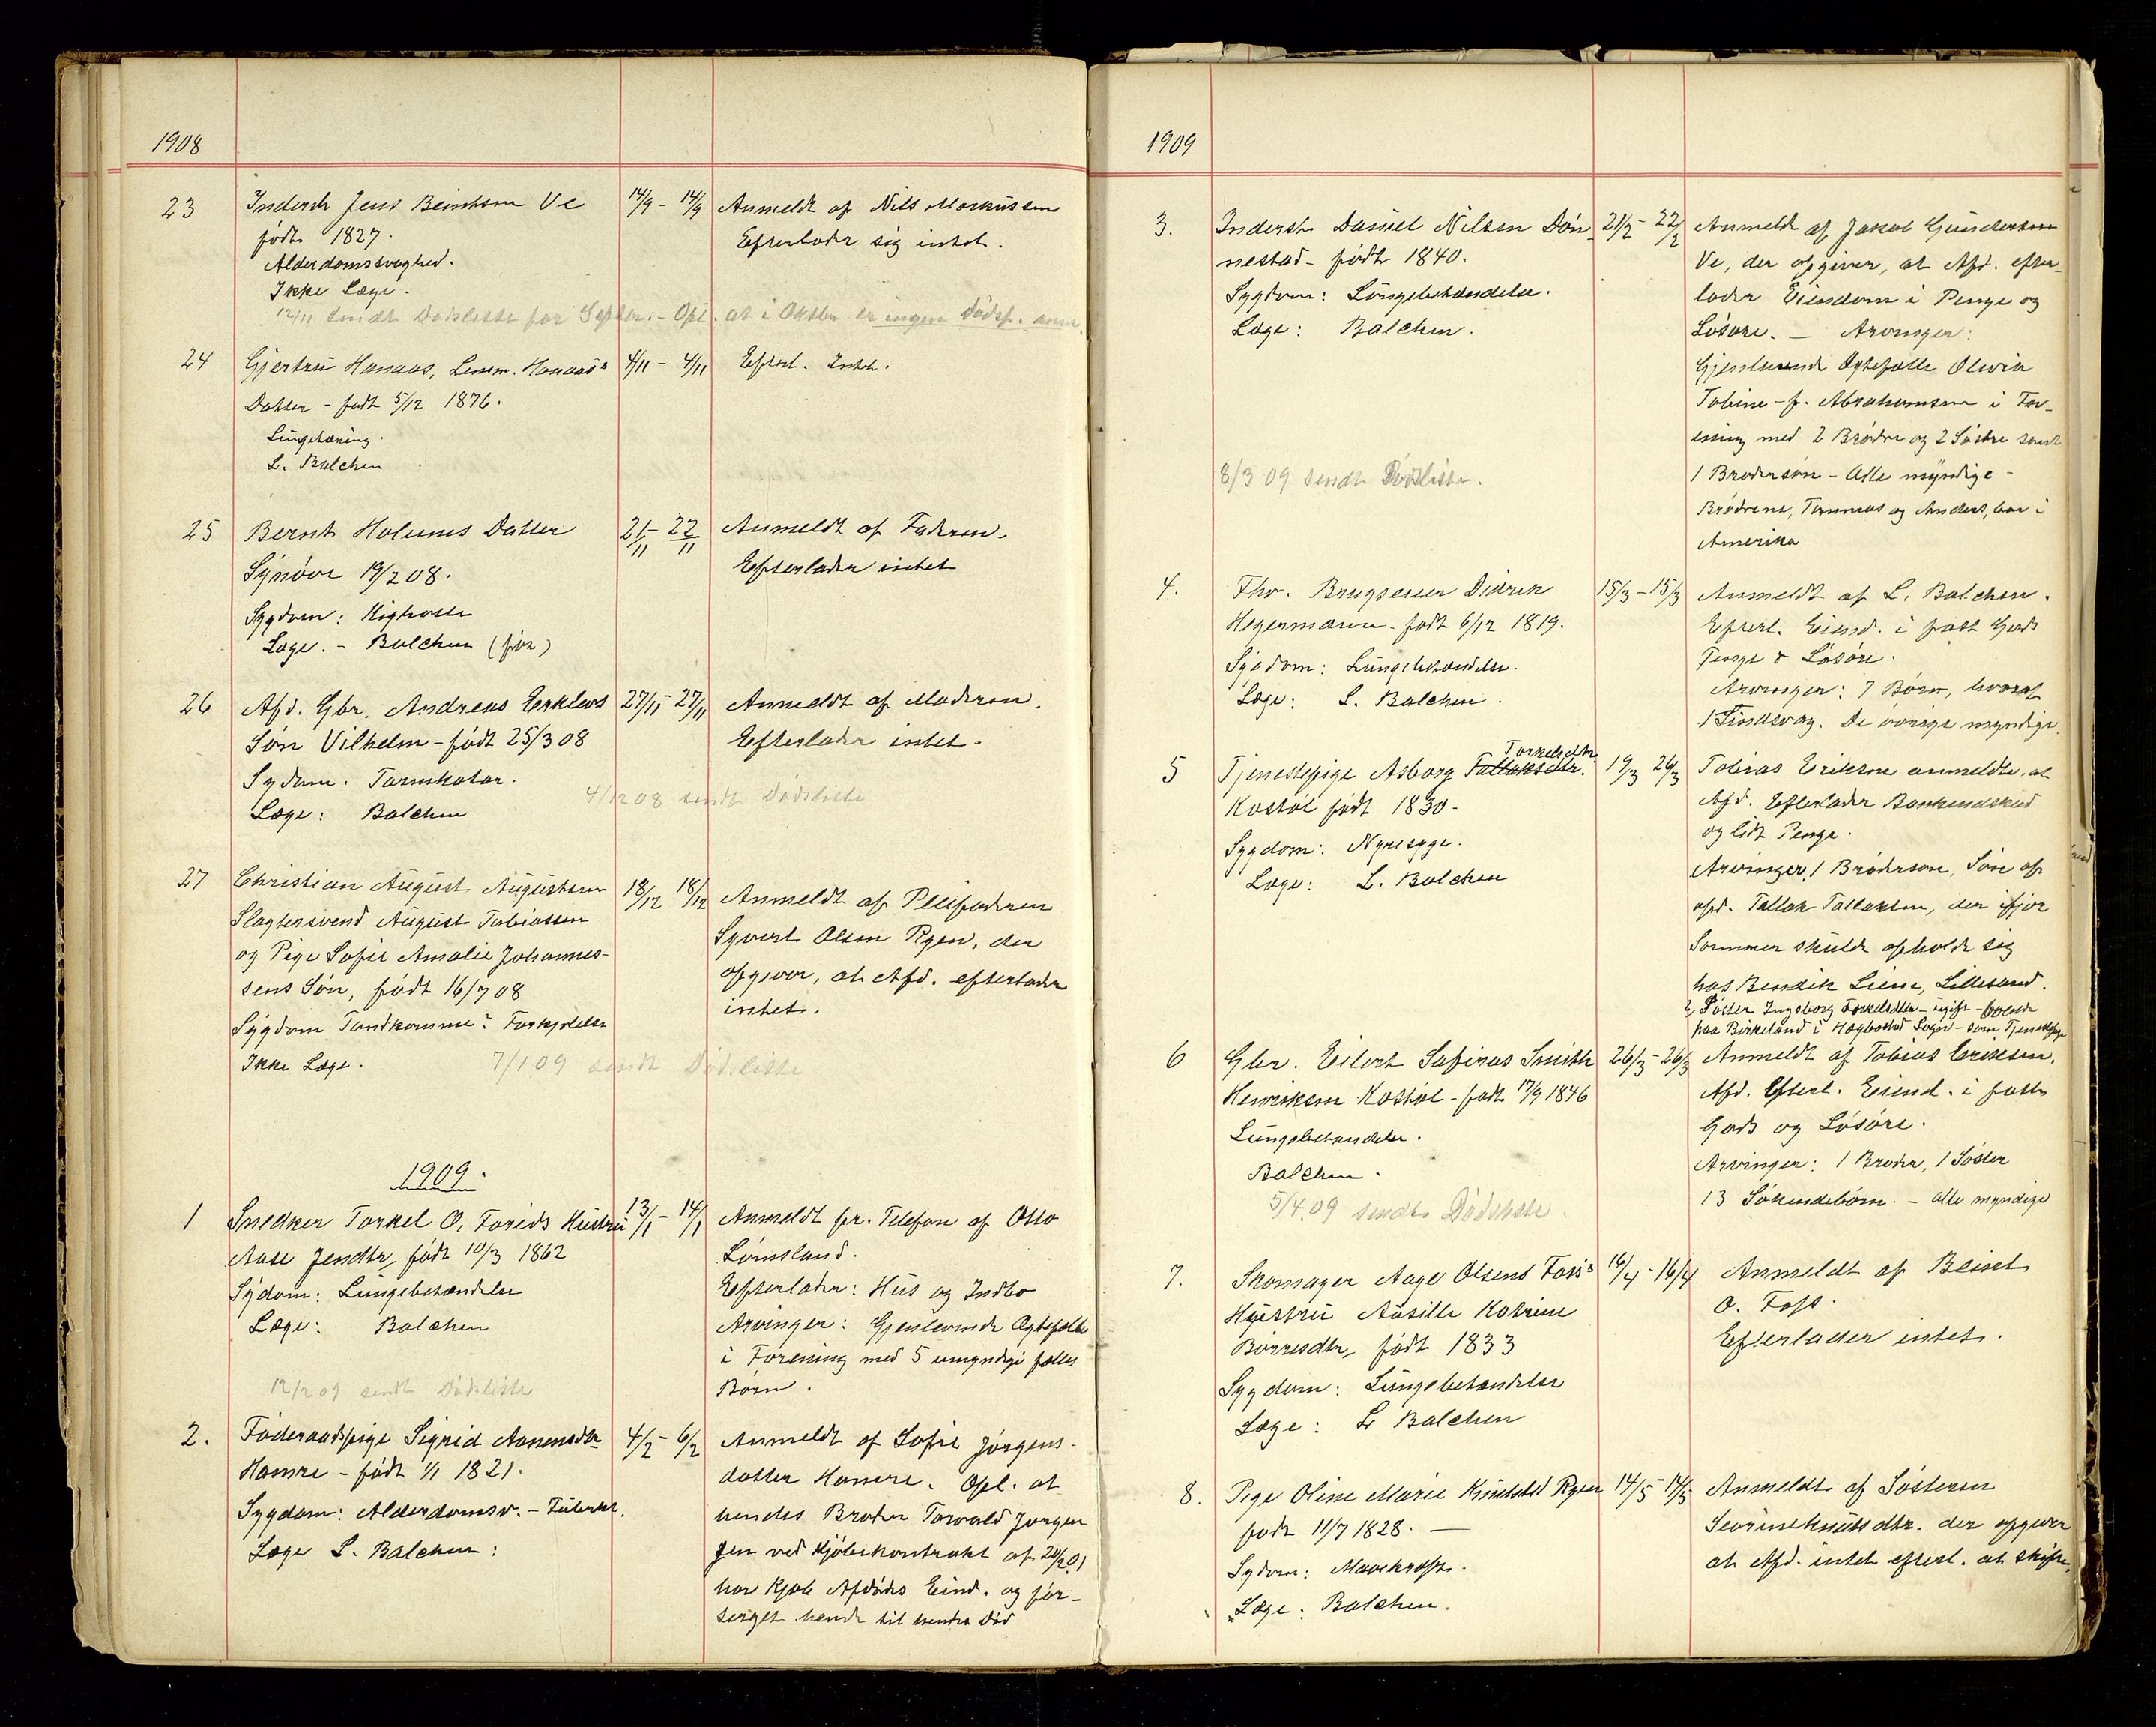 1908
23
Inderst Jens Berntsen Ve
født 1827.
Alderdomssvaghed.
Ikke Læge.
14/9 - 14/9
Anmeldt af Nils Markussen
Efterlader sig intet.
12/11 sendt Dødsliste for Septbr. - Opl. at i Oktbr er ingen Dødsf. anm.
24
Gjertru Hanaas, Lensm. Hanaas's
Datter - født 5/12 1876.
Lungetæring.
L. Balchen
4/11 - 4/11
Efterl. Intet.
25
Bernt Holumes Datter
Synøve 19/2 08.
Sygdom: Kighoste
Læge. - Balchen (før)
21/11 - 22/11
Anmeldt af Faderen.
Efterlader intet
26
Afd. Gbr. Andreas Erklevs
Søn Vilhelm - født 25/3 08
Sygdom. Tarmkatar.
Læge: Balchen
27/11 - 27/11
Anmeldt af Moderen.
Efterlader intet.
4/12 08 sendt Dødsliste
27
Christian August Augustsen
Slagtersvend August Tobiassen
og Pige Sofie Amalie Johannes-
sens Søn, født 16/7 08
Sygdom Tandkomme: Forkjølelse
Ikke Læge.
18/12 18/12
Anmeldt af Pleifaderen
Syvert Olsen Ryen, der
opgiver, at Afd. efterlader
intet.
7/1 09 sendt Dødsliste
1909.
1
Snedker Torkel O. Foss's Hustru
Aase Jensdtr, født 10/3 1862
Sydom: Lungebetændelse
Læge: Balchen
13/1 - 14/1
Anmeldt pr. Telefon af Otto
Lømsland.
Efterlader: Hus og Indbo
Arvinger: Gjenlevende Ægtefælle
i Forening med 5 umyndige fælles
Børn.
12/2 09 sendt Dødsliste
2.
Føderaadspige Sigrid Aanensdtr
Hamre - født 1/1 1821.
Sygdom: Alderdomsv. - Tuberkl.
Læge L. Balchen:
4/2 - 6/2
Anmeldt af Sofie Jørgens-
datter Hamre. Opl. at
hendes Broder Torvald Jørgen
sen ved Kjøbekontrakt af
har kjøb Afdødes Eiend. og for-
sørget hende til hendes Død
1909
3.
Inderst Daniel Nilsen Døn-
nestad - født 1840.
Sygdom: Lungebetændelse.
Læge: Balchen.
21/2 - 22/2
Anmeldt af Jakob Gundersen
Ve, der opgiver, at Afd. efter-
lader Eiendom i Penge og
Løsøre. - Arvinger:
Gjenlevende Ægtefælle Olivia
Tobine - f. Abrahamsen i For-
ening med 2 Brødre og 2 Søstre samt
1 Brodersøn - Alle myndige -
Brødrene, Tommas og Anders, bor i
Amerika
8/3 09 sendt Dødsliste.
4.
Fhv. Brugseier Didrik
Hegermann - født 6/12 1819.
Sygdom: Lungebetændelse.
Læge: L. Balchen.
15/3 - 15/3
Anmeldt af L. Balchen.
Efterl. Eiend. i fast Gods
Penge & Løsøre.
Arvinger: 7 Børn, hvoraf
1 Sindsvag. De øvrige myndige.
5
Torkelsdtr
Tjenestepige Asborg Tallaksdtr.
Kostøl født 1830 -
Sygdom: Nyresyge.
Læge: L. Balchen
19/3 26/3
Tobias Eriksen anmeldte, at
Afd. Efterlader Bankindskud
og lidt Penge.
Arvinger, 1 Brodersøn, Søn af
afd. Tallak Tallaksen, der ifjor
Sommer skulde opholde sig
hos Bendik Liene, Lillesand.
2, Søster Ingeborg Torkelsdtr - ugift - boende
paa Birkeland i Hægbostad Sogn - som Tjenestepige
6
Gbr. Eilert Sefinas Smith
Henriksen Kostøl - født 17/9 1846
Lungebetændelse.
Balchen.
26/3 - 26/3
Anmeldt af Tobias Eriksen.
Afd. Efterl. Eiend. i fast
Gods og Løsøre.
Arvinger: 1 Broder, 1 Søster
13 Søskendebørn. - alle myndige
5/4.09 sendt Dødsliste.
7.
Skomager Aage Olsens Foss's
Hustru Aasille Katrine
Børresdtr, født 1833
Sygdom: Lungebetændelse
Læge: L Balchen
16/4 - 16/4
Anmeldt af Beint
O. Foss.
Efterlader intet.
8.
Pige Oline Marie Knutsdtr Ryen
født 11/7 1828. -
Sydom: Mavekræft.
Læge: Balchen.
14/5 - 14/5
Anmeldt af Søsteren
Severine Knutsdtr. der opgiver
at Afd. intet efterl. at skifte.